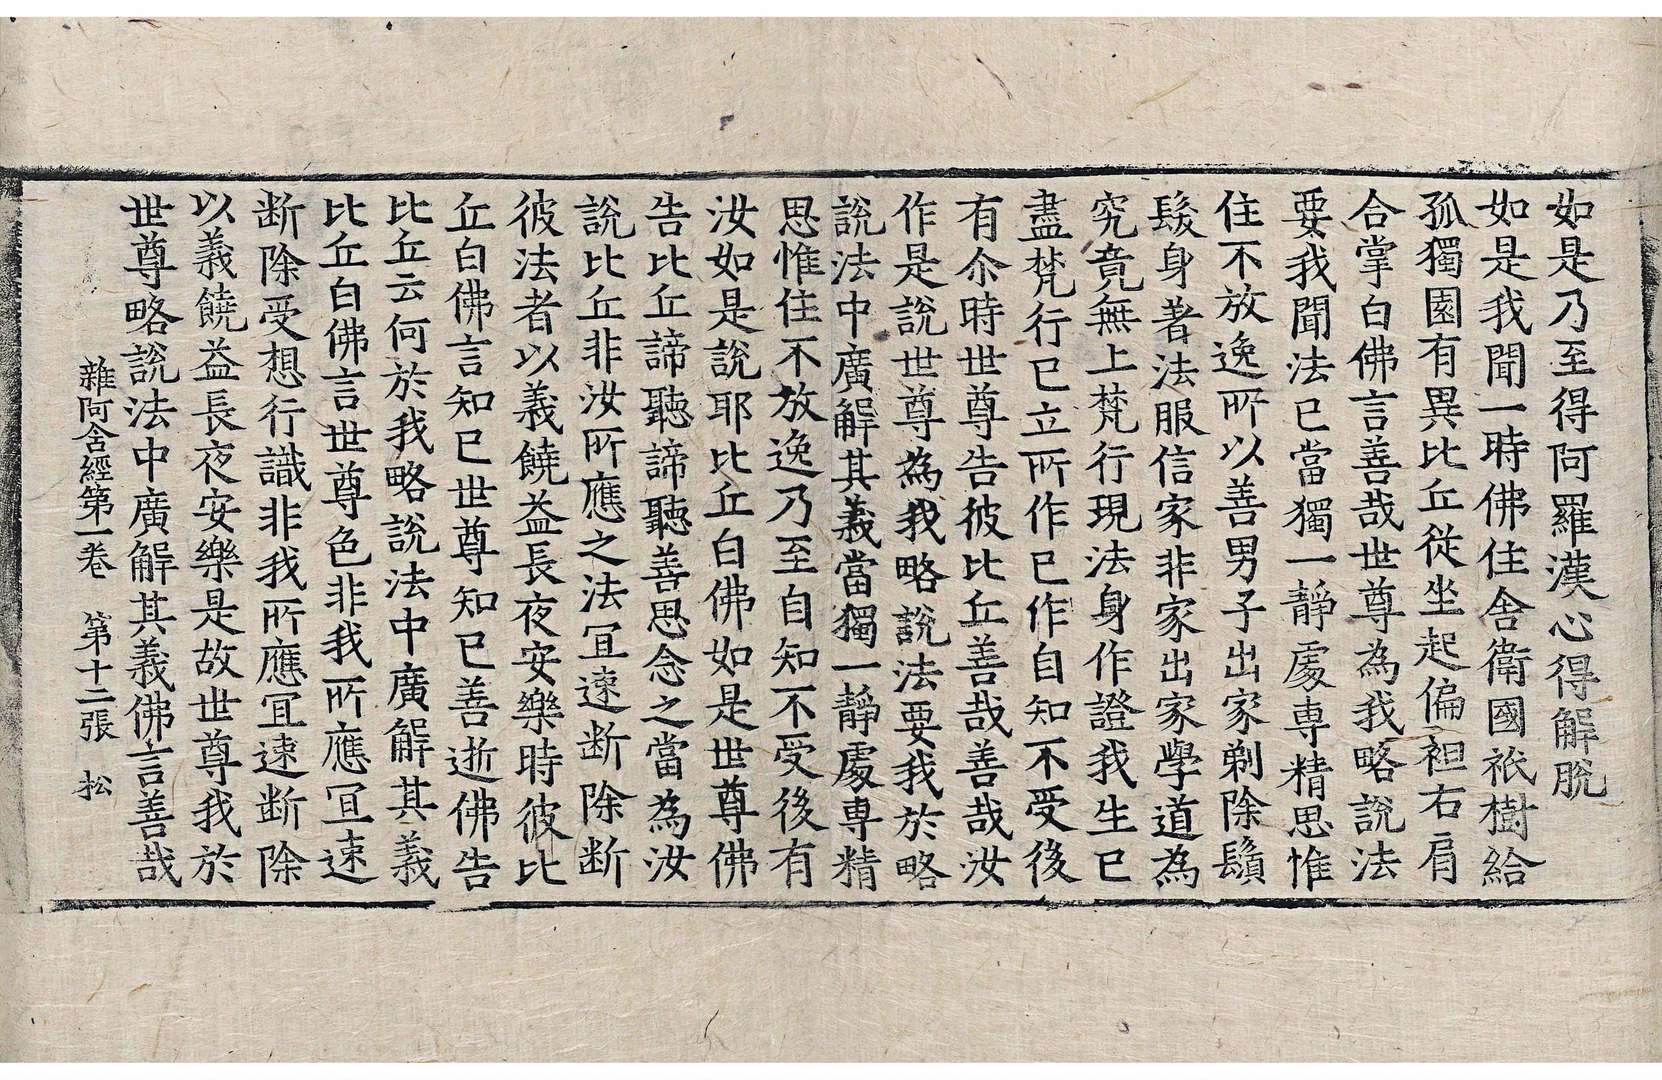 如是乃至得阿羅漢心得解脫
如是我聞一時佛住舍衛國祇樹給
孤獨園有異比丘從坐起偏袒右肩
合掌白佛言善哉世尊為我略說法
要我聞法已當獨一靜處専精思惟
住不放逸所以善男子出家剃除鬚
髮身著法服信家非家出家學道為
究竟無上梵行現法身作證我生已
盡梵行已立所作已作自知不受後
有尒時世尊告彼比丘善哉善哉汝
作是說世尊為我略說法要我於略
說法中廣解其義當獨一靜處専精
思惟住不放逸乃至自知不受後有
汝如是說耶比丘白佛如是世尊佛
告比丘諦聽諦聽善思念之當為汝
說比丘非汝所應之法冝速断除断
彼法者以義饒益長夜安樂時彼比
丘白佛言知已世尊知已善逝佛告
比丘云何於我略說法中廣解其義
比丘白佛言世尊色非我所應冝速
断除受想行識非我所應冝速断除
以義饒益長夜安樂是故世尊我於
世尊略說法中廣解其義佛言善哉
雜阿含經第一卷　第十二張　松